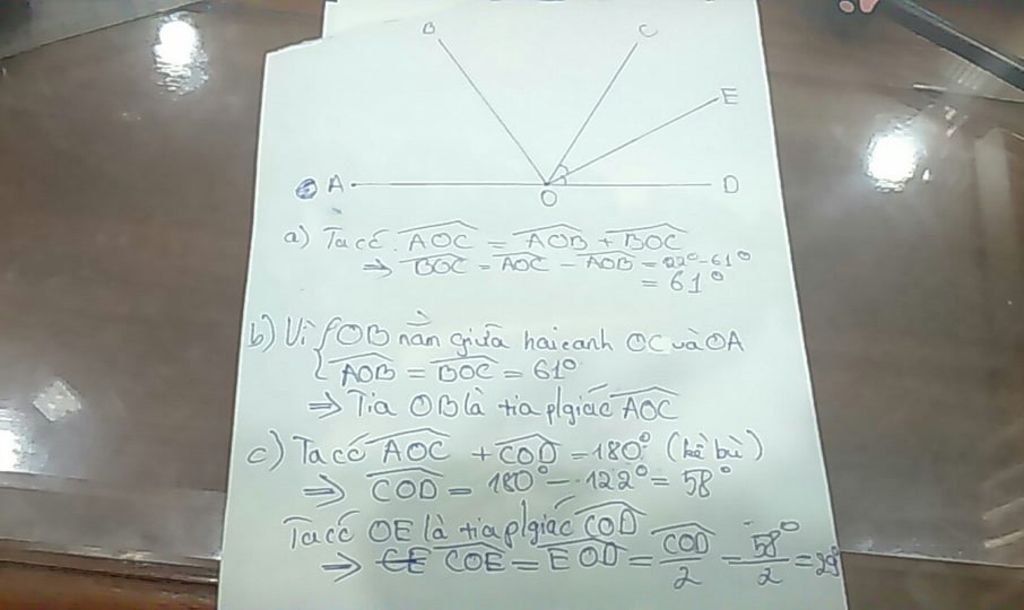 B C
E
A D
O
a) Ta có: AOC = AOB + BOC
⇒ BOC = AOC - AOB = 122° - 61°
= 61°
b) Vì { OB nằm giữa hai cạnh OC và OA
AOB = BOC = 61°
⇒ Tia OB là tia p/giác AOC
c) Ta có AOC + COD = 180° (kề bù)
⇒ COD = 180° - 122° = 58°
Ta có OE là tia p/giác COD
⇒ COE = EOD = COD/2 = 58°/2 = 29°